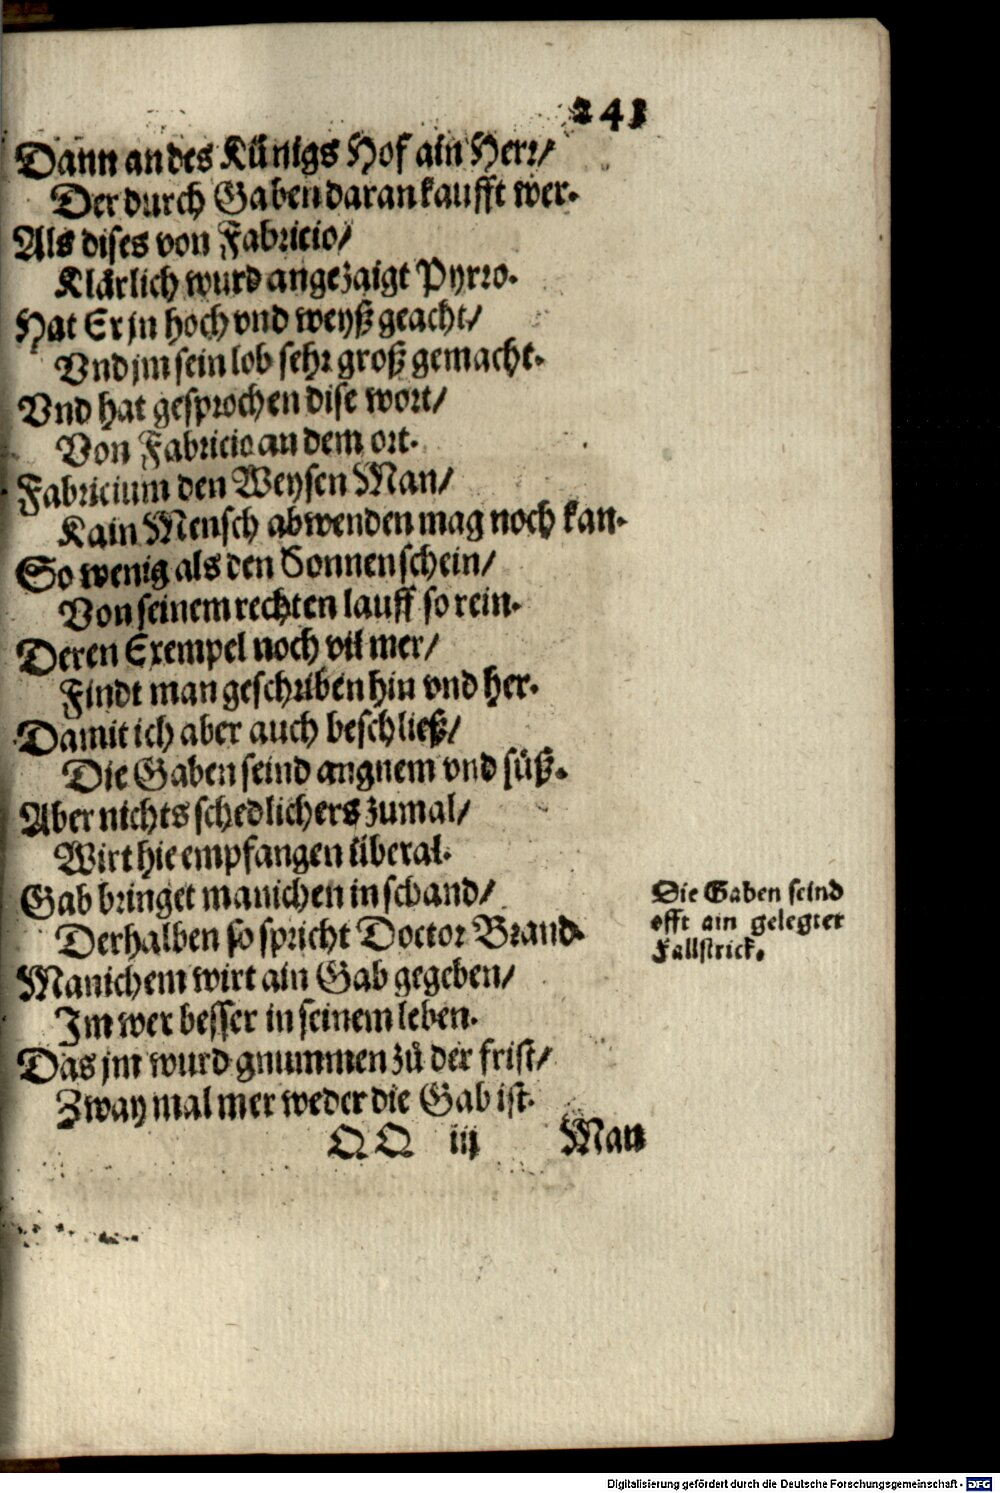 243
Dann an des Künigs Hof ain Herr/
Der durch Gaben daran kaufft wer.
Als dises von Fabricio/
Klärlich wurd angezaigt Pyrro.
Hat Er jn hoch vnd weyß geacht/
Vnd jm sein lob sehr groß gemacht.
Vnd hat gesprochen dise wort/
Von Fabricio an dem ort.
Fabricium den Weysen Man/
Kain Mensch abwenden mag noch kan.
So wenig als den Sonnenschein/
Von seinem rechten lauff so rein.
Deren Exempel noch vil mer/
Findt man geschriben hin vnd her.
Damit ich aber auch beschließ/
Die Gaben seind angnem vnd süß.
Aber nichts schedlichers zumal/
Wirt hie empfangen überal.
Gab bringet manichen in schand/
Derhalben so spricht Doctor Brand.
Manichem wirt ain Gab gegeben/
Im wer besser in seinem leben.
Das jm wurd gnummen zů der frist/
Zway mal mer weder die Gab ist.
QQ iij Man
Die Gaben seind
offt ain gelegter
Fallstrick.
Digitalisierung gefördert durch die Deutsche Forschungsgemeinschaft - DFG